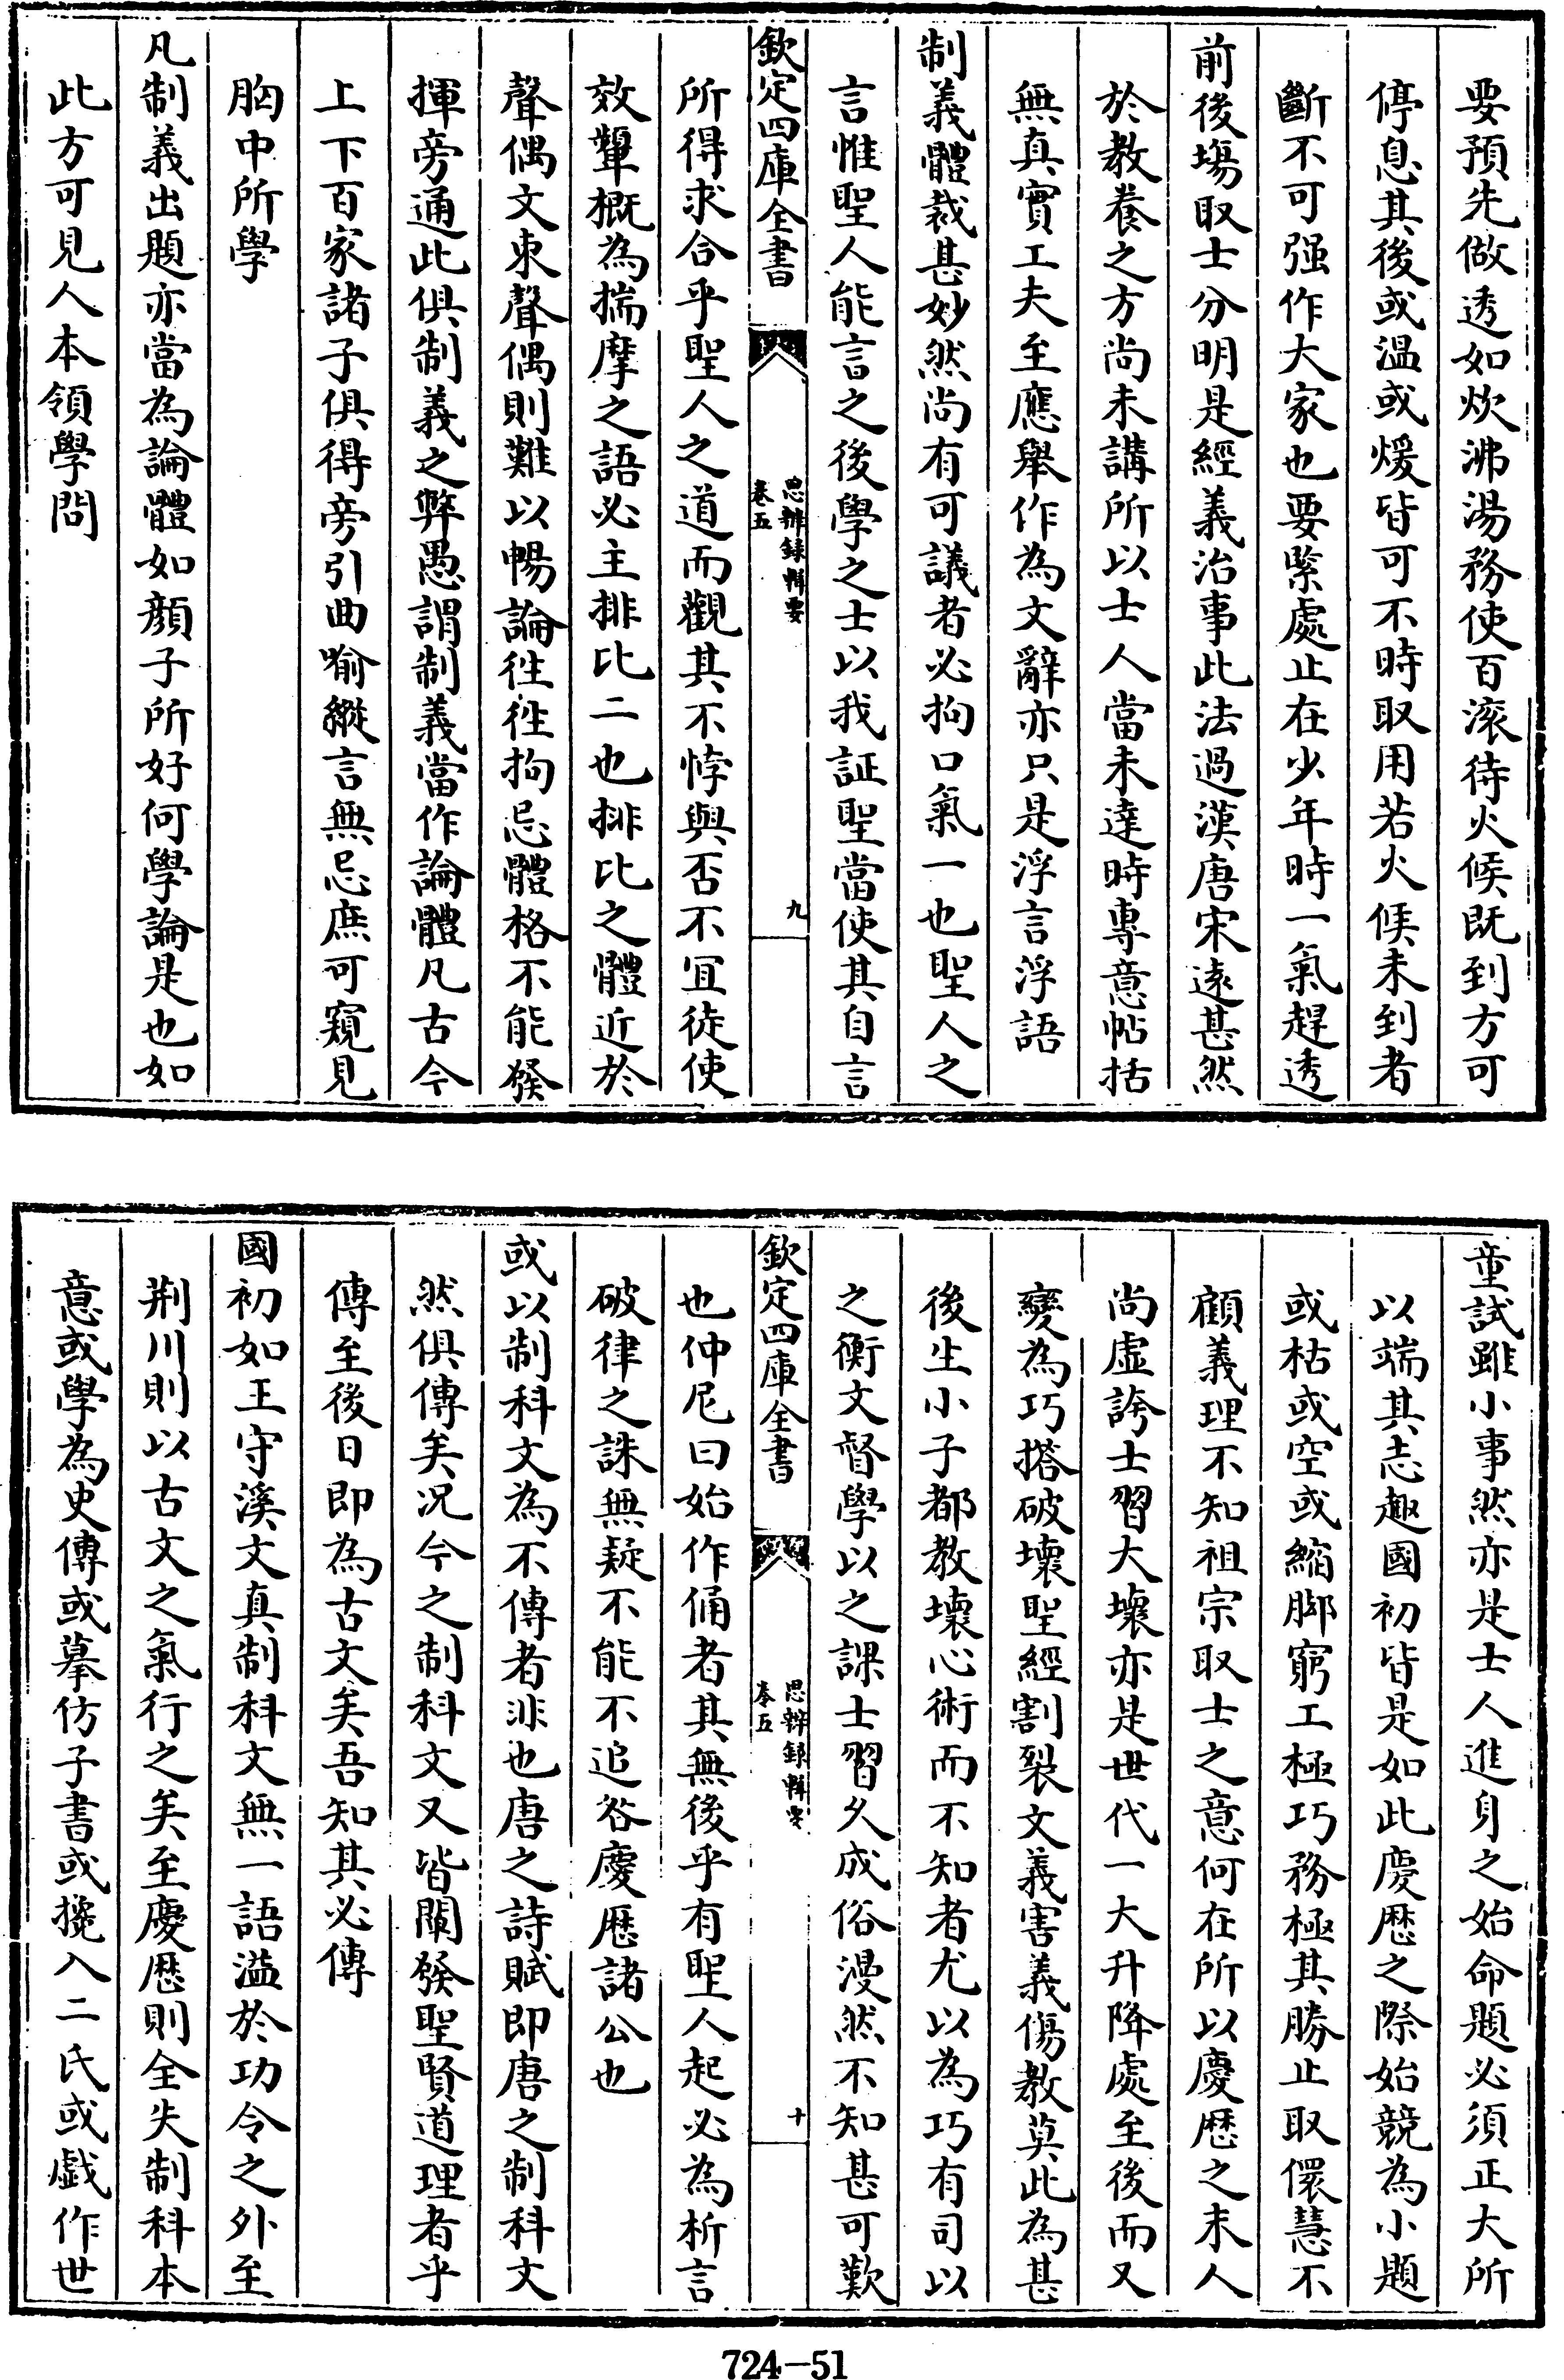 要預先做透如炊沸湯務使百滚待火候既到方可
停息其後或温或煖皆可不時取用若火候未到者
斷不可强作大家也要緊處止在少年時一氣趕透
前後塲取士分明是經義治事此法過漢唐宋遠甚然
於教養之方尚未講所以士人當未達時專意帖括
無真實工夫至應舉作為文辭亦只是浮言浮語
制義體裁甚妙然尚有可議者必拘口氣一也聖人之
言惟聖人能言之後學之士以我証聖當使其自言
欽定四庫全書
思辨録輯要
卷五
九
所得求合乎聖人之道而觀其不悖與否不冝徒使
效顰概為揣摩之語必主排比二也排比之體近於
聲偶文束聲偶則難以暢論徃徃拘忌體格不能發
揮旁通此俱制義之弊愚謂制義當作論體凡古今
上下百家諸子俱得旁引曲喻縱言無忌庶可窺見
胸中所學
凡制義出題亦當為論體如顔子所好何學論是也如
此方可見人本領學問
童試雖小事然亦是士人進身之始命題必須正大所
以端其志趣國初皆是如此慶厯之際始競為小題
或枯或空或縮脚窮工極巧務極其勝止取儇慧不
顧義理不知祖宗取士之意何在所以慶厯之末人
尚虚誇士習大壞亦是世代一大升降處至後而又
變為巧搭破壞聖經割裂文義害義傷教莫此為甚
後生小子都教壞心術而不知者尤以為巧有司以
之衡文督學以之課士習久成俗漫然不知甚可歎
欽定四庫全書
思辨録輯要
卷五
十
也仲尼曰始作俑者其無後乎有聖人起必為析言
破律之誅無疑不能不追咎慶厯諸公也
或以制科文為不傳者非也唐之詩賦即唐之制科文
然俱傳矣况今之制科文又皆闡發聖賢道理者乎
傳至後日即為古文矣吾知其必傳
國初如王守溪文真制科文無一語溢於功令之外至
荆川則以古文之氣行之矣至慶厯則全失制科本
意或學為史傳或摹仿子書或攙入二氏或戲作世
724-51